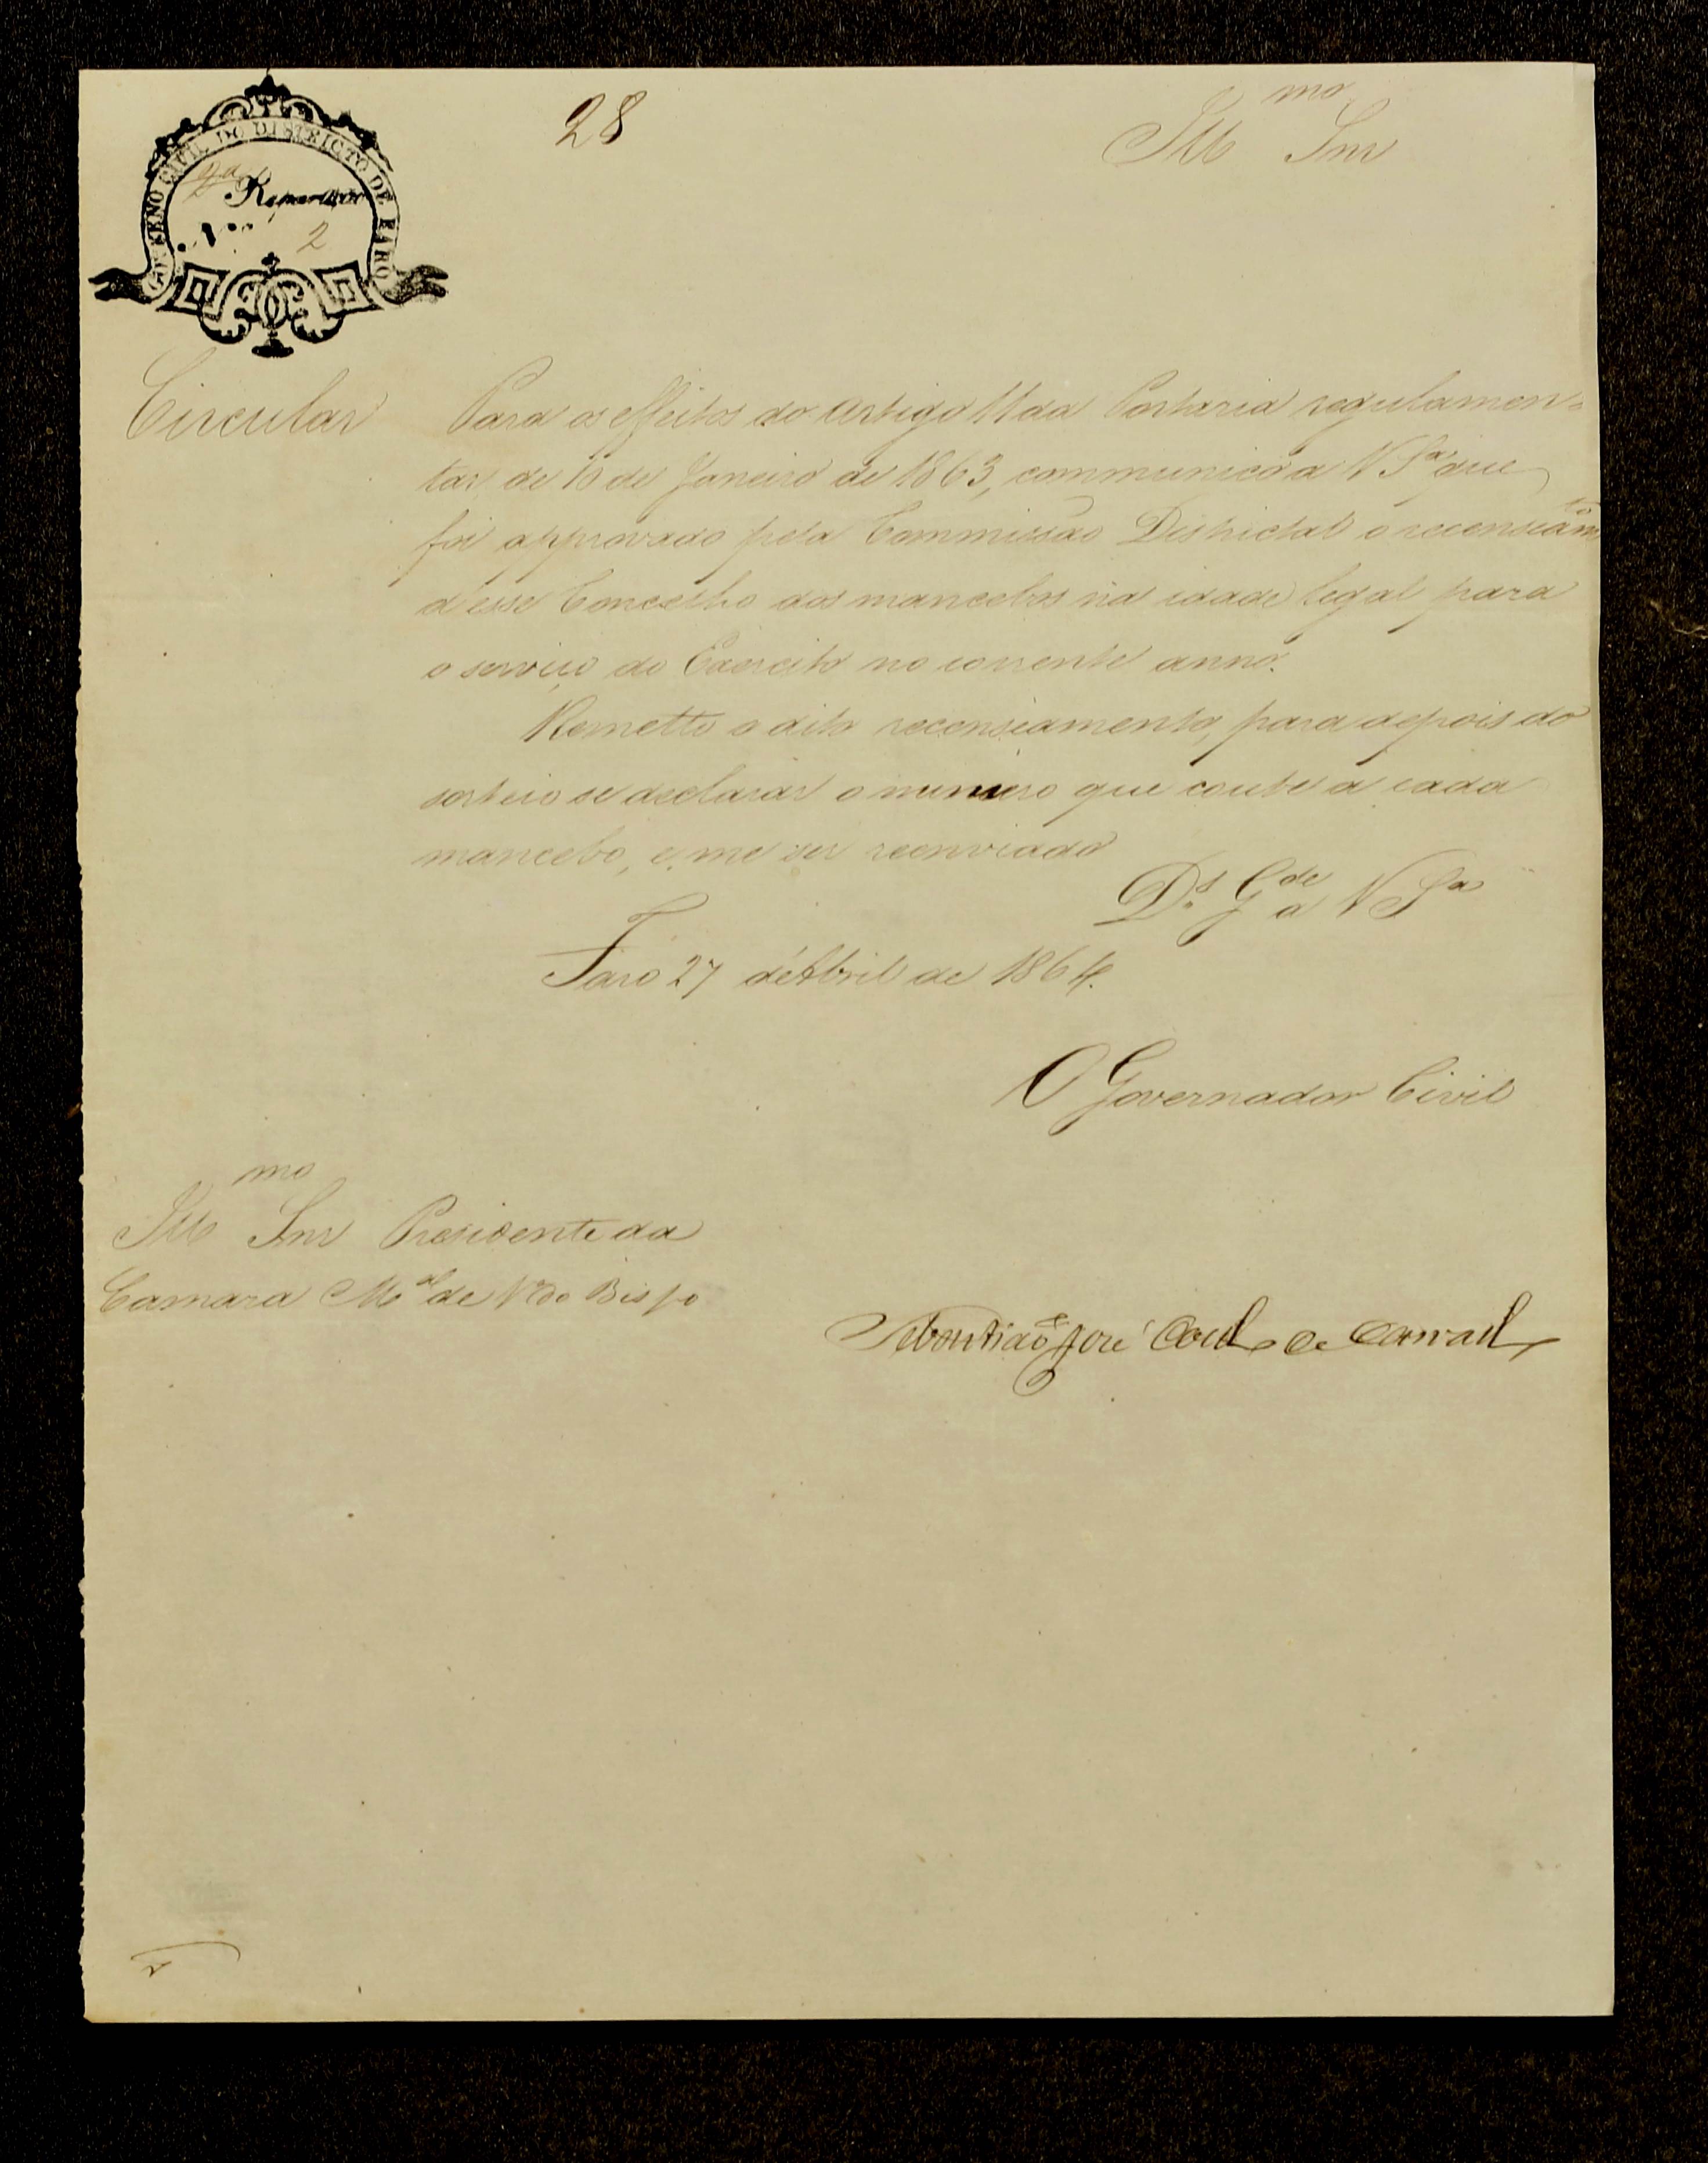 28
Illmo Snr
GOVERNO CIVIL DO DISTRICTO DE FARO
2ª Repartição
N.º 2
Circular
Para os effeitos do Artigo 11 da Portaria regulamen-
tar de 10 de Janeiro de 1863, communico a V Sª que
foi approvado pela Commissão Districtal o recenseamto
d'esse Concelho dos mancebos na idade legal para
o serviço do Exercito no corrente anno.
Remetto o dito recenseamento, para depois do
sorteio se declarar o numero que coube a cada
mancebo, e me ser reenviado
Ds Gde a V Sª
Faro 27 d'Abril de 1864.
O Governador Civil
Illmo Snr Presidente da
Camara Mal de Vª do Bispo
Sebastião José de